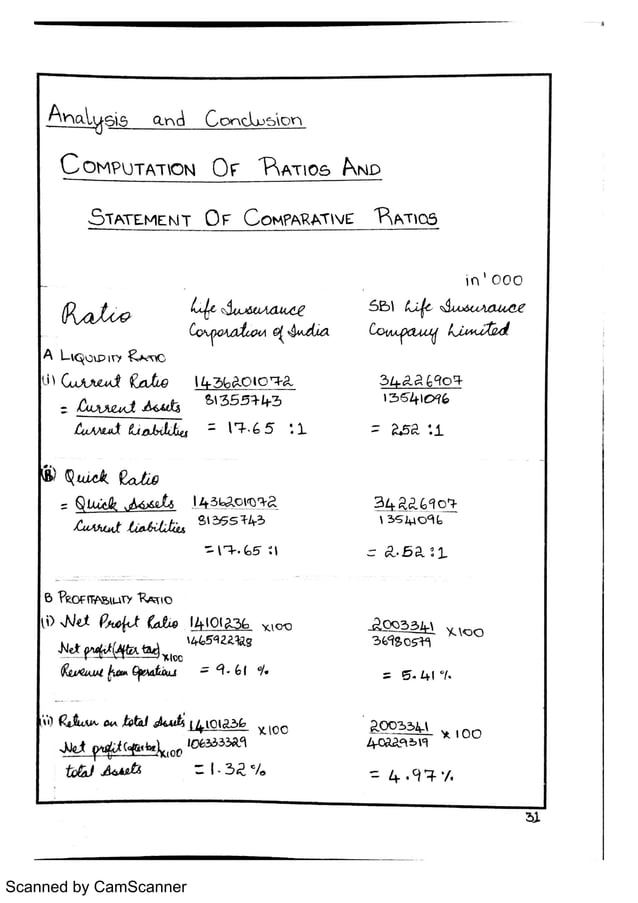 Analysis and Conclusion
COMPUTATION OF RATIOS AND
STATEMENT OF COMPARATIVE RATIOS
in '000
Ratio Life Insurance Corporation of India SBI Life Insurance Company Limited
A LIQUIDITY RATIO
(i) Current Ratio 1436201072 34226907
= Current Assets 81355743 13541096
Current Liabilities = 17.65 :1 = 2.52 :1
(ii) Quick Ratio
= Quick Assets 1436201072 34226907
Current liabilities 81355743 13541096
= 17.65 :1 = 2.52 :1
B PROFITABILITY RATIO
(i) Net Profit Ratio 14101236 x100 2003341 x100
Net profit (After tax) x100 1465922728 36980579
Revenue from Operations = 9.61 % = 5.41 %
(ii) Return on total assets 14101236 x100 2003341 x 100
Net profit (after tax) x100 106333329 40229319
total Assets = 1.32 % = 4.97 %
31
Scanned by CamScanner